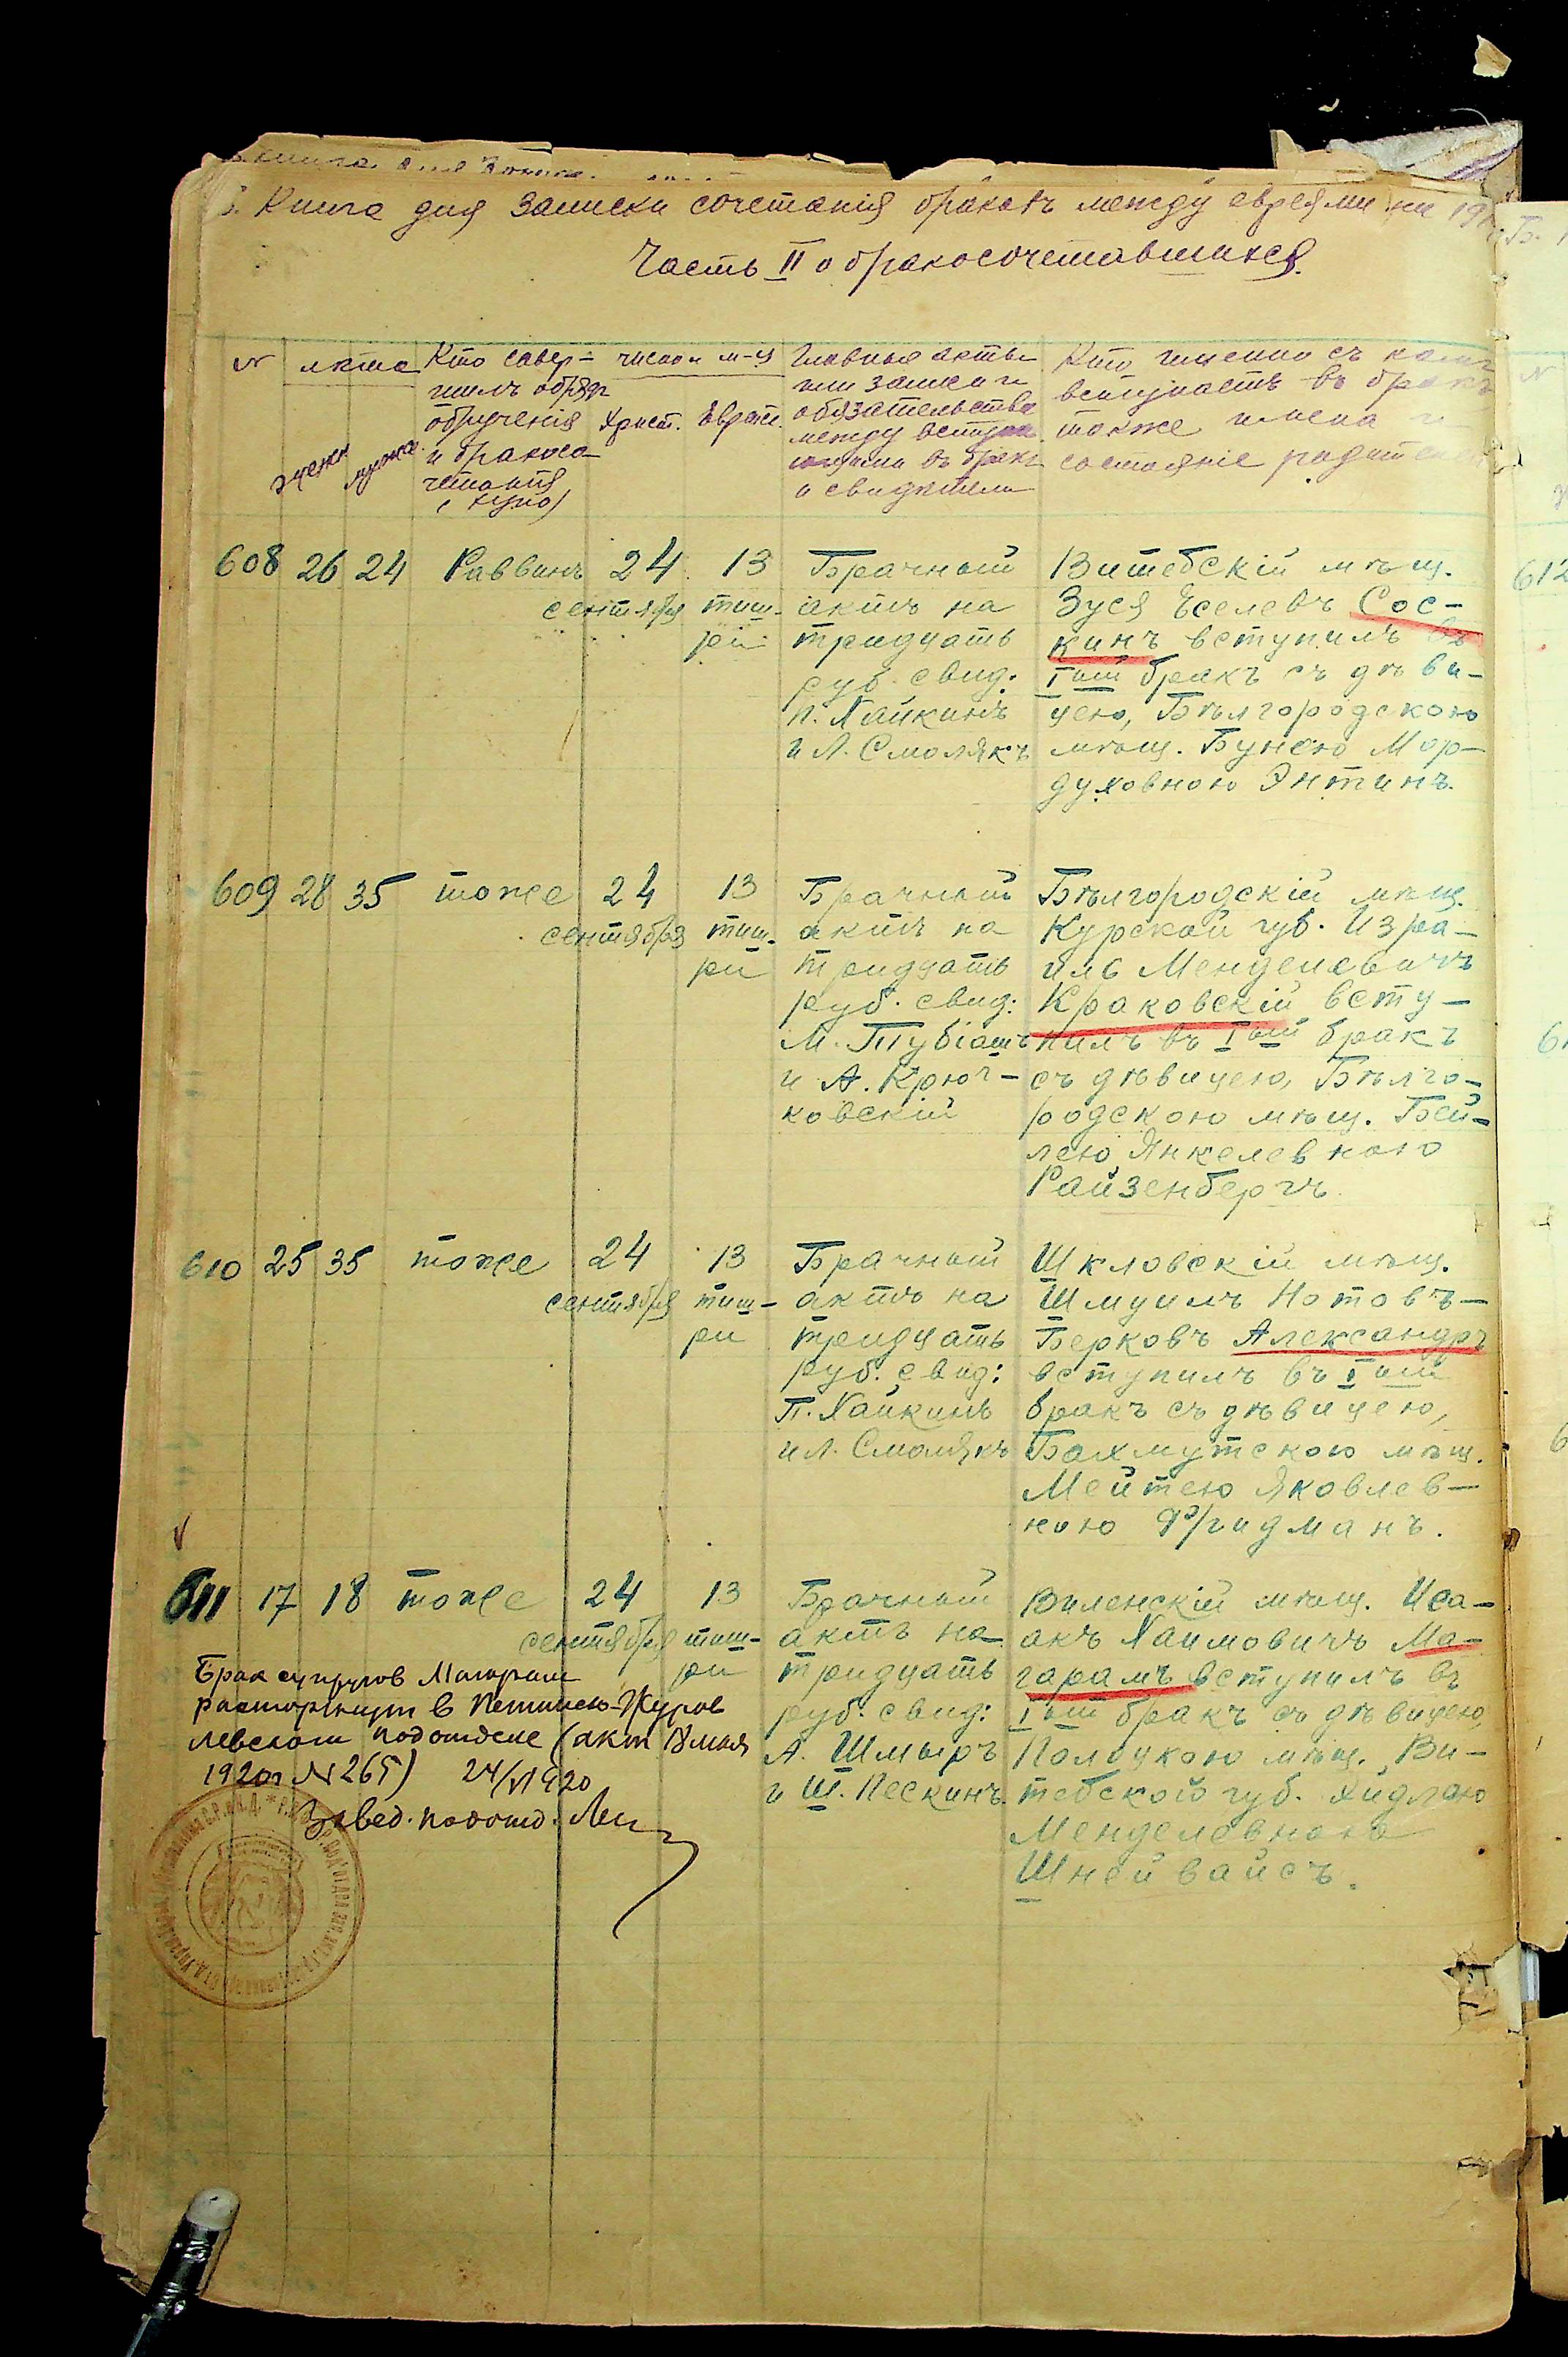 Книга для записи сочетанія браковъ между евреями на 191
Часть II о бракосочетавшихся.
№
лѣта
жены
мужа
Кто совер-
шилъ обряд
обрученія
и бракосо
четанія
(хупо)
число и м-ц
Христ.
Еврейс.
Главные акты
или записи и
обязательства
между вступаю
щими въ бракъ
и свидѣтели
Кто именно съ кѣмъ
вступаетъ въ бракъ
также имена и
состояніе родителей
608
26
24
Раввинъ
24
сентября
13
тиш-
ри
Брачный
актъ на
тридцать
руб. свид:
П. Хайкинъ
и Л. Смолякъ
Витебскій мѣщ.
Зуся Іоселевъ Сос-
кинъ вступилъ въ
Iый бракъ съ дѣви-
цею, Бѣлгородскою
мѣщ. Бунею Мор-
духовною Энтинъ.
609
28
35
тоже
24
сентября
13
тиш-
ри
Брачный
актъ на
тридцать
руб. свид:
М. Тубіашъ
и А. Крюч-
ковскій
Бѣлгородскій мѣщ.
Курской губ. Изра-
иль Менделевичъ
Краковскій всту-
пилъ въ Iый бракъ
съ дѣвицею, Бѣлго-
родскою мѣщ. Бей-
лею Янкелевною
Райзенбергъ.
610
25
35
тоже
24
сентября
13
тиш-
ри
Брачный
актъ на
тридцать
руб. свид:
П. Хайкинъ
и Л. Смолякъ
Шкловскій мѣщ.
Шмуилъ Нотовъ-
Берковъ Александръ
вступилъ въ Iый
бракъ съ дѣвицею,
Бахмутскою мѣщ.
Мейтею Яковлев-
ною Фридманъ.
611
17
18
тоже
24
сентября
13
тиш-
ри
Брачный
актъ на
тридцать
руб. свид:
А. Шмыръ
и Ш. Пескинъ.
Виленскій мѣщ. Иса-
акъ Хаимовичъ Ма-
гарамъ вступилъ въ
Iый бракъ съ дѣвицею,
Полоцкою мѣщ. Ви-
тебской губ. Хидлою
Менделевною
Шнейвайсъ.
Брак супругов Магарам
расторгнут в Петинско-Журав
левском подотделе (акт 18 мая
1920г № 265) 24/VI 920
Завед. подотд.
612